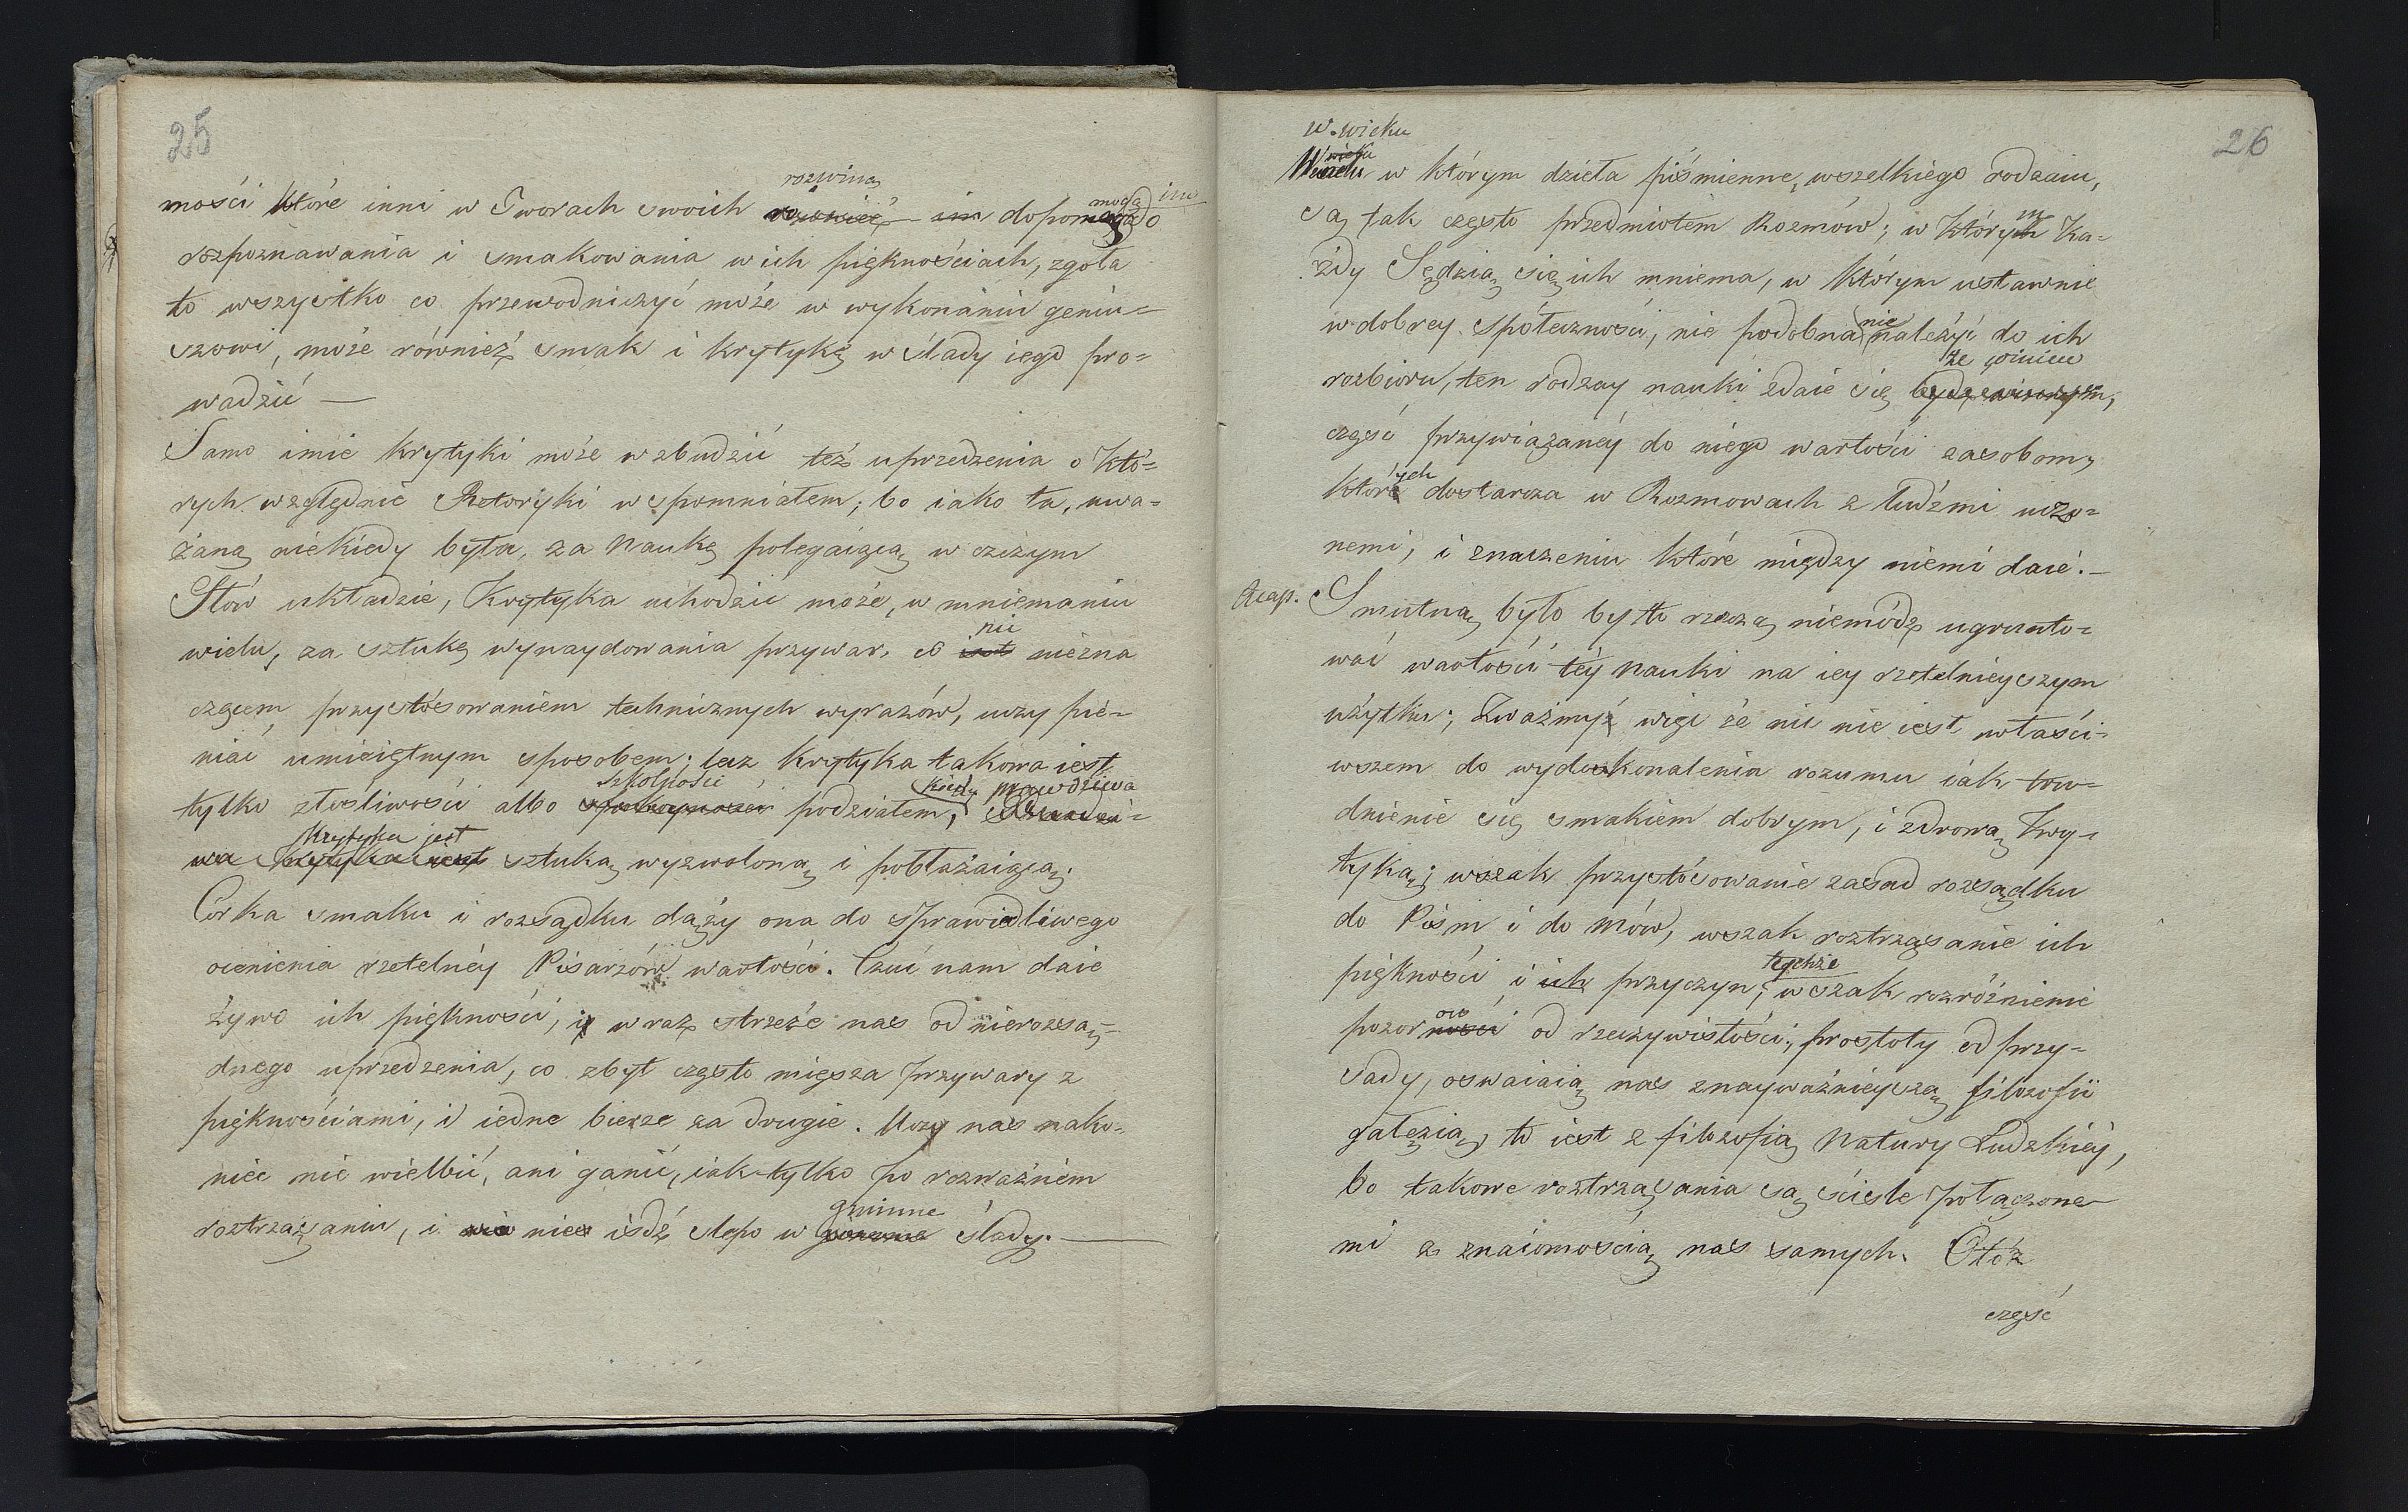 25
mości które inni w Tworach swoich rozwiną dopomogą im do
rozpoznawania i smakowania w ich pięknościach, zgoła
to wszystko co przewodniczyć może w wykonaniu geniu=
szowi, może również smak i krytykę w ślady iego pro=
wadzić —
Samo imie krytyki może wzbudzić też uprzedzenia o któ=
rych względnie Retoryki wspomniałem; bo iako ta, uwa=
żaną niekiedy była, za naukę polegaiącą w czczym
Słów układzie, Krytyka uchodzić może, w mniemaniu
wielu, za sztukę wynaydowania przywar, co nic niezna
czącem przystósowaniem technicznych wyrazów, uczy pie=
niać umieiętnym sposobem; lecz krytyka takowa iest
tylko złosliwości albo szkolności podziałem, kiedy prawdziwa
Krytyka jest sztuką wyzwoloną i pobłażaiącą.
Córka smaku i rozsądku dąży ona do sprawiedliwego
ocenienia rzetelnéy Pisarzów wartości. Czuć nam daie
żywo ich piękności, i wraz strzeże nas od nierozsą=
dnego uprzedzenia, co zbyt często miesza przywary z
pięknościami, i iedne bierze za drugie. Uczy nas nako=
niec nie wielbić, ani ganić, iak tylko po rozważném
roztrząsaniu, i nie iśdź slepo w gminne ślady. —
26
w wieku
w którym dzieła piśmienne, wszelkiego rodzaiu,
są tak często przedmiotem Rozmów; w którym Ka=
żdy Sędzią się ich mniema, w którym ustawnie
w dobrey społeczności, nie podobna nie należyć do ich
rozbioru, ten rodzay nauki zdaie się że winien
część przywiązanéy do niego wartości zasobom,
których dostarcza w Rozmowach z ludźmi uczo=
nemi, i znaczeniu które między niemi daie. —
Acap. Smutną było by to rzeczą niemódz ugrunto=
wać wartość téy nauki na iey rzetelnieyszym
użytku; Zważmyż więc że nic nie iest właści=
wszem do wydoskonalenia rozumu iak tru=
dnienie się smakiem dobrym, i zdrową Kry=
tyką; wszak przystósowanie zasad rozsądku
do Pism i do mów, wszak roztrząsanie ich
piękności i przyczyn tychże; wszak rozróżnienie
pozorów od rzeczywistości, prostoty od przy=
sady, oswaiaią nas znayważnieyszą filozofii
gałęzią, to iest z filozofią Natury Ludzkiéy,
bo takowe roztrząsania są ściśle połączone=
mi z znaiomością nas samych. Otóż
część